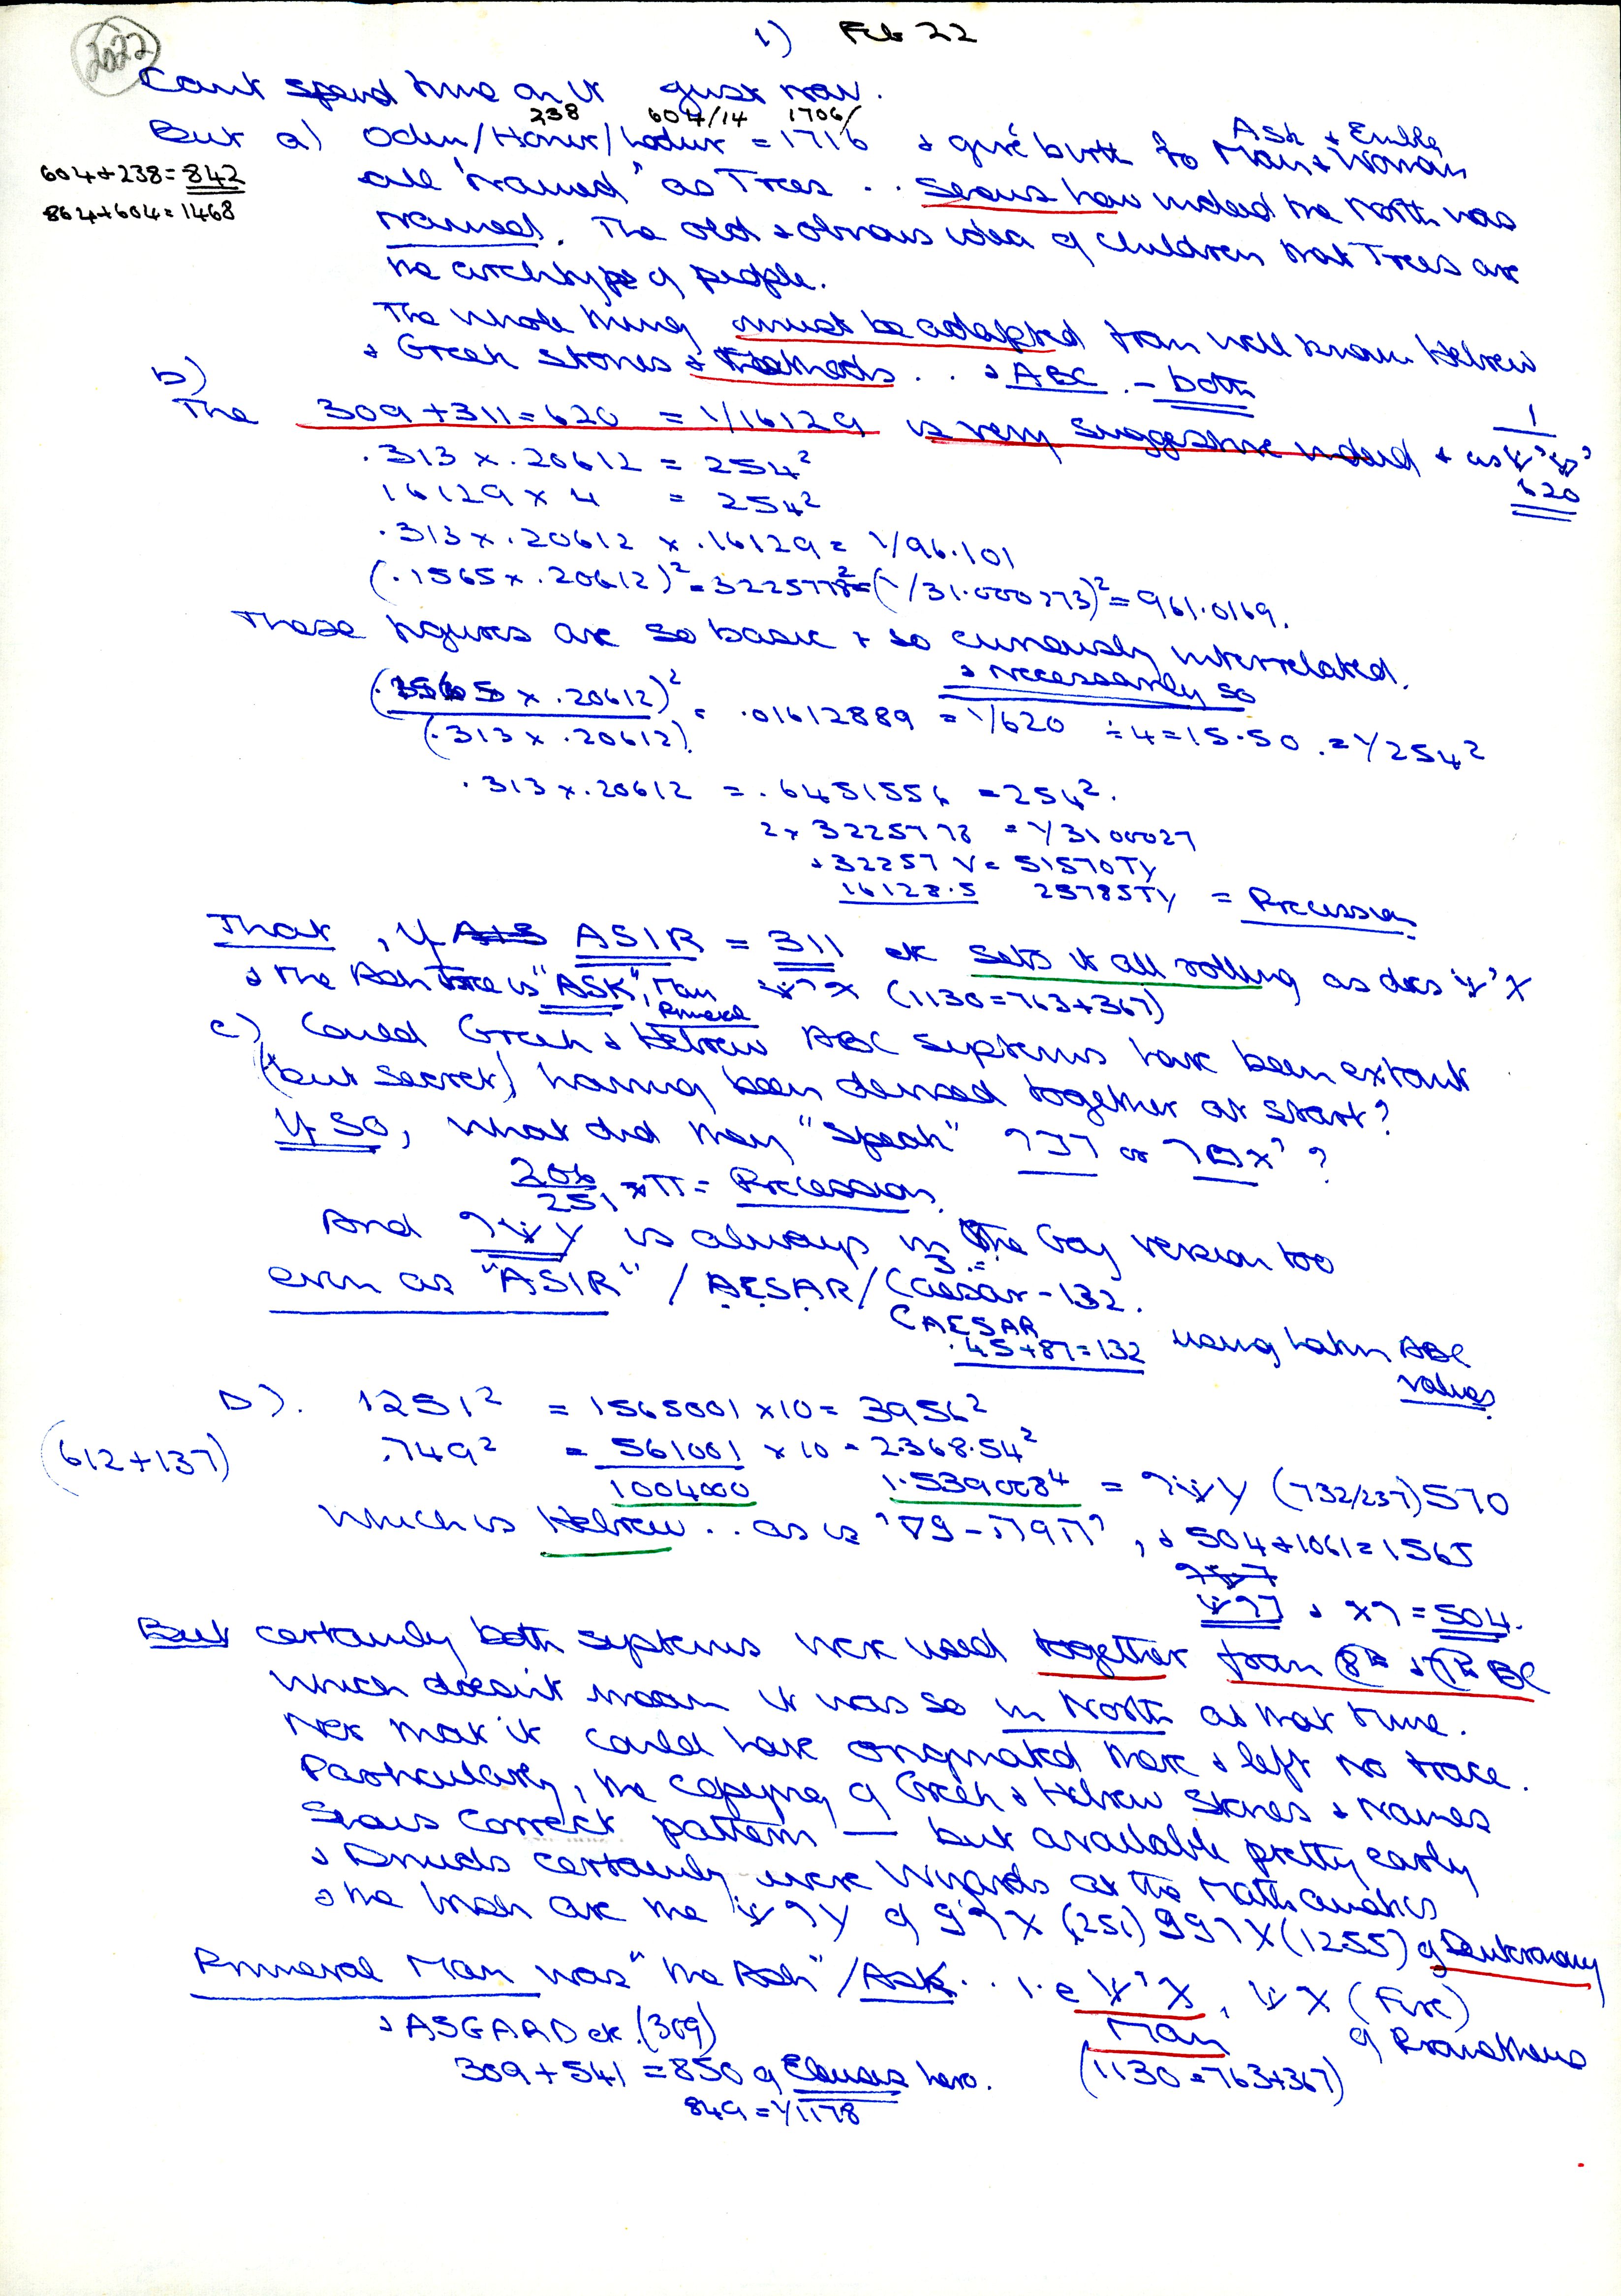 2022
1) Feb 22
Can't spend time on it just now.
238 604/14 1706/
But a) Odin/Honir/Lodur = 1716 & give birth to Man & Woman
Ask & Embla
604+238=842
864+604=1468
all "named" as Trees .. Shows how indeed the North was
named. The old & obvious idea of children that Trees are
the archtype of people.
The whole thing must be adapted from well known Hebrew
& Greek stories & methods .. & ABC - both
b)
The 309+311=620 = 1/16129 is very suggestive indeed & as
1
620
.313 x .20612 = 254²
16129 x 4 = 254²
.313 x .20612 x .16129 = 1/96.101
(.1565 x .20612)² = 3225778² = (1/31.000273)² = 961.0169.
These figures are so basic & so curiously interrelated.
& necessarily so
(.1565 x .20612)²
(.313 x .20612)
= .01612889 = 1/620 ÷4=15.50 . = 1/254²
.313 x .20612 = .6451556 = 254².
2 x 3225778 = 1/3100027
& 32257 V = 51570TY
16128.5 25785TY = Precession
That, if ASIR = 311 etc sets it all rolling as does שיא
& the Ash Tree is "ASK", Man שיא (1130=763+367)
Primeval
c) Could Greek & Hebrew ABC systems have been extant
(but secret) having been devised together at start?
If so, what did they "speak" ?
206
251 x π = Precession
And רשע is always in the Goy version too
even as "ASIR" / AESAR / Caesar - 132.
CAESAR
.45+87=132 using Latin ABC
values
D). 1251² = 1565001 x10 = 3956²
.749² = 561001 x 10 = 2368.54²
(612+137)
1004000 1.5390084 = רשע (732/237) 570
Which is Hebrew .. as is , & 504+1061=1565
& = 504.
But certainly both systems were used together from 8th & 7th BC
which doesn't mean it was so in North at that time.
Nor that it could have originated there & left no trace.
Particularly, the copying of Greek & Hebrew stories & names
Shows correct pattern — but available pretty early
& Druids certainly were Wizards at the Mathematics
& the Irish are the of (251) (1255) of Deuteronomy
Primeval Man was "the Ash" / Ask . . i.e שיא , שא (Fire)
Man
of Prometheus
& ASGARD etc. (309)
309+541 = 850 of Eleusis hero. (1130=763+367)
849=1/1178